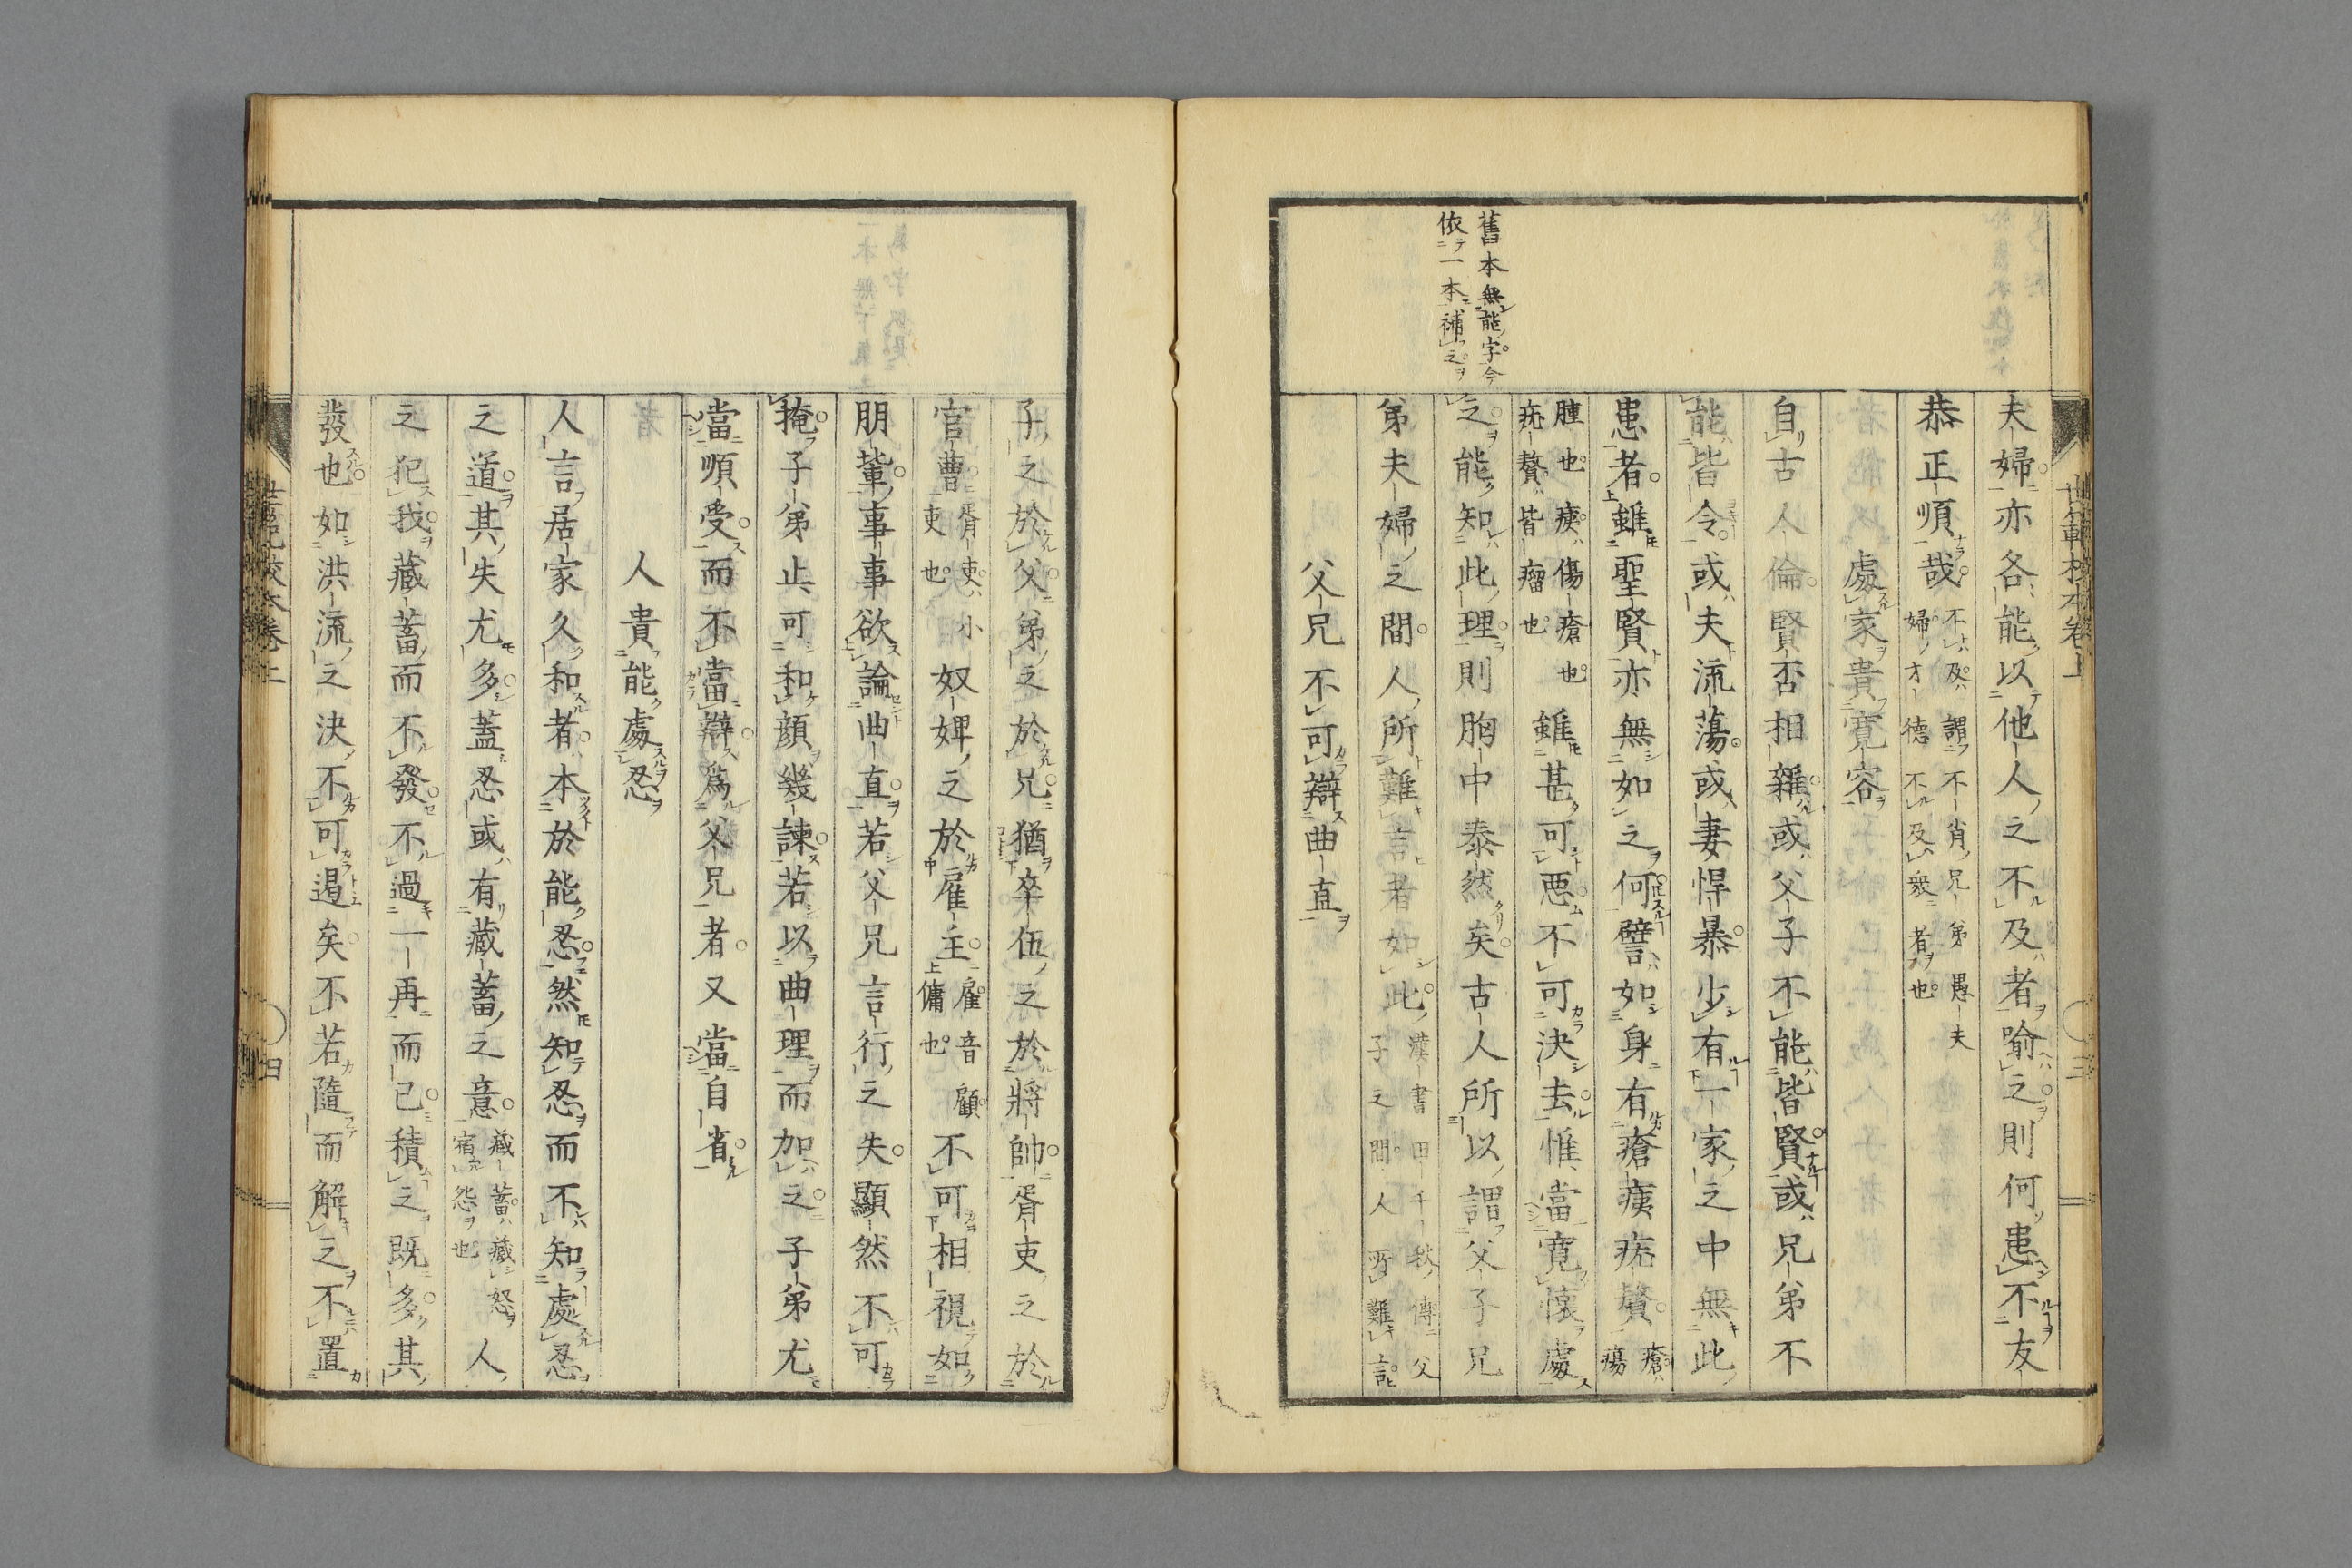 舊本無能字今
依一本補之
世範校本卷上
夫婦亦各能以他人之不及者喻之則何患不友
恭正順哉不及謂不肖兄弟愚夫婦才德不及衆者也
處家貴寛容
自古人倫賢否相雜或父子不能皆賢或兄弟不
能皆令或夫流蕩或妻悍暴少有一家之中無此
患者雖聖賢亦無如之何譬如身有瘡痍疣贅瘡瘍
腫也痍傷瘡也疣贅皆瘤也雖甚可惡不可決去惟當寛懷處
之能知此理則胸中泰然矣古人所以謂父子兄
弟夫婦之間人所難言者如此漢書田千秋傳父子之間人所難言
父兄不可辯曲直
子之於父弟之於兄猶卒伍之於將帥胥吏之於
官曹胥吏小吏也奴婢之於雇主雇音顧傭也不可相視如
朋輩事事欲論曲直若父兄言行之失顯然不可
掩子弟止可和顔幾諫若以曲理而加之子弟尤
當順受而不當辯爲父兄者又當自省
人貴能處忍
人言居家久和者本於能忍然知忍而不知處忍
之道其失尤多蓋忍或有藏蓄之意藏蓄藏怒宿怨也人
之犯我藏蓄而不發不過一再而已積之既多其
發也如洪流之決不可遏矣不若隨而解之不置
世範校本卷上
四